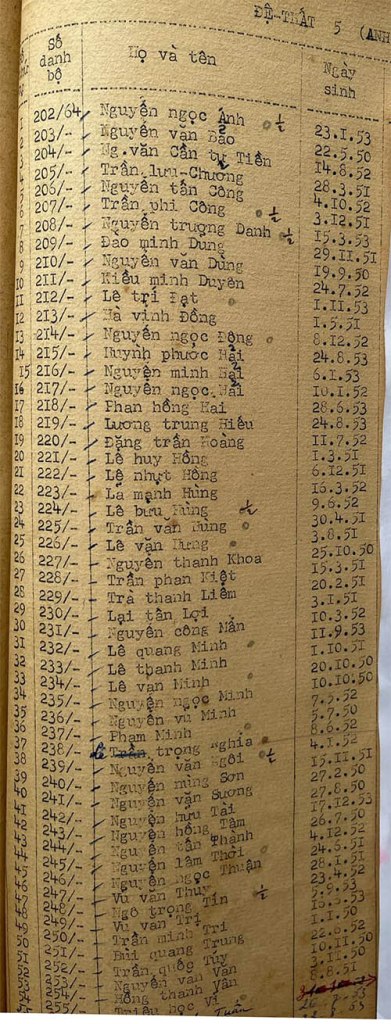 ĐỆ-THẤT 5 (ANH
Số danh bộ Họ và tên Ngày sinh
1 202/64 Nguyễn ngọc Ánh ½ 23.1.53
2 203/-- Nguyễn văn Bảo 22.5.50
3 204/-- Ng.văn Cần tự Tiến 14.8.52
4 205/-- Trần lưu-Chương 28.3.51
5 206/-- Nguyễn tấn Công 4.10.52
6 207/-- Trần phi Công ½ 3.12.51
7 208/-- Nguyễn trương Danh ½ 15.3.53
8 209/-- Đào minh Dung 29.11.51
9 210/-- Nguyễn văn Dũng 19.9.50
10 211/-- Kiều minh Duyên 24.7.52
11 212/-- Lê trí Đạt 1.11.53
12 213/-- Hà vinh Đồng 1.5.51
13 214/-- Nguyễn ngọc Động 8.12.52
14 215/-- Huỳnh phước Hải 24.8.53
15 216/-- Nguyễn minh Hải 6.1.53
16 217/-- Nguyễn ngọc Hải 10.1.52
17 218/-- Phan hồng Hai 28.6.53
18 219/-- Lương trung Hiếu 24.8.53
19 220/-- Đặng trần Hoàng 11.7.52
20 221/-- Lê huy Hồng 1.3.51
21 222/-- Lê nhựt Hồng 6.12.51
22 223/-- Lã mạnh Hùng 16.3.52
23 224/-- Lê bửu Hùng ½ 9.6.52
24 225/-- Trần văn Hùng 30.4.51
25 226/-- Lê văn 3.8.51
26 227/-- Nguyễn thanh Khoa 25.10.50
27 228/-- Trần phan Kiệt 15.3.51
28 229/-- Trà thanh Liêm 20.2.51
29 230/-- Lại tấn Lợi 3.1.51
30 231/-- Nguyễn công Mẫn 10.3.52
31 232/-- Lê quang Minh 11.9.53
32 233/-- Lê thanh Minh 1.10.51
33 234/-- Lê văn Minh 20.10.50
34 235/-- Nguyễn ngọc Minh 10.10.50
35 236/-- Nguyễn vũ Minh 7.5.52
36 237/-- Phạm Minh 5.7.50
37 238/-- Lê trọng Nghĩa 8.6.52
38 239/-- Nguyễn văn Ngôi ½ 4.1.52
39 240/-- Nguyễn hùng Sơn 15.11.51
40 241/-- Nguyễn văn Sương 27.2.50
41 242/-- Nguyễn hữu Tài 27.8.50
42 243/-- Nguyễn hồng Tâm 17.12.53
43 244/-- Nguyễn tấn Thành 26.7.50
44 245/-- Nguyễn lâm Thới 4.12.52
45 246/-- Nguyễn ngọc Thuận 24.6.51
46 247/-- Vũ văn Thuy 28.1.51
47 248/-- Ngô trọng Tín ½ 23.4.52
48 249/-- Vũ văn Trí 5.9.53
49 250/-- Trần minh Trí 15.5.53
50 251/-- Bùi quang Trung 1.1.50
51 252/-- Trần quốc Túy 22.8.52
52 253/-- Nguyễn văn Vân 10.11.50
53 254/-- Hồng thanh Vân 3.11.50
54 255/-- Triệu học Vi 8.8.51
Tuấn